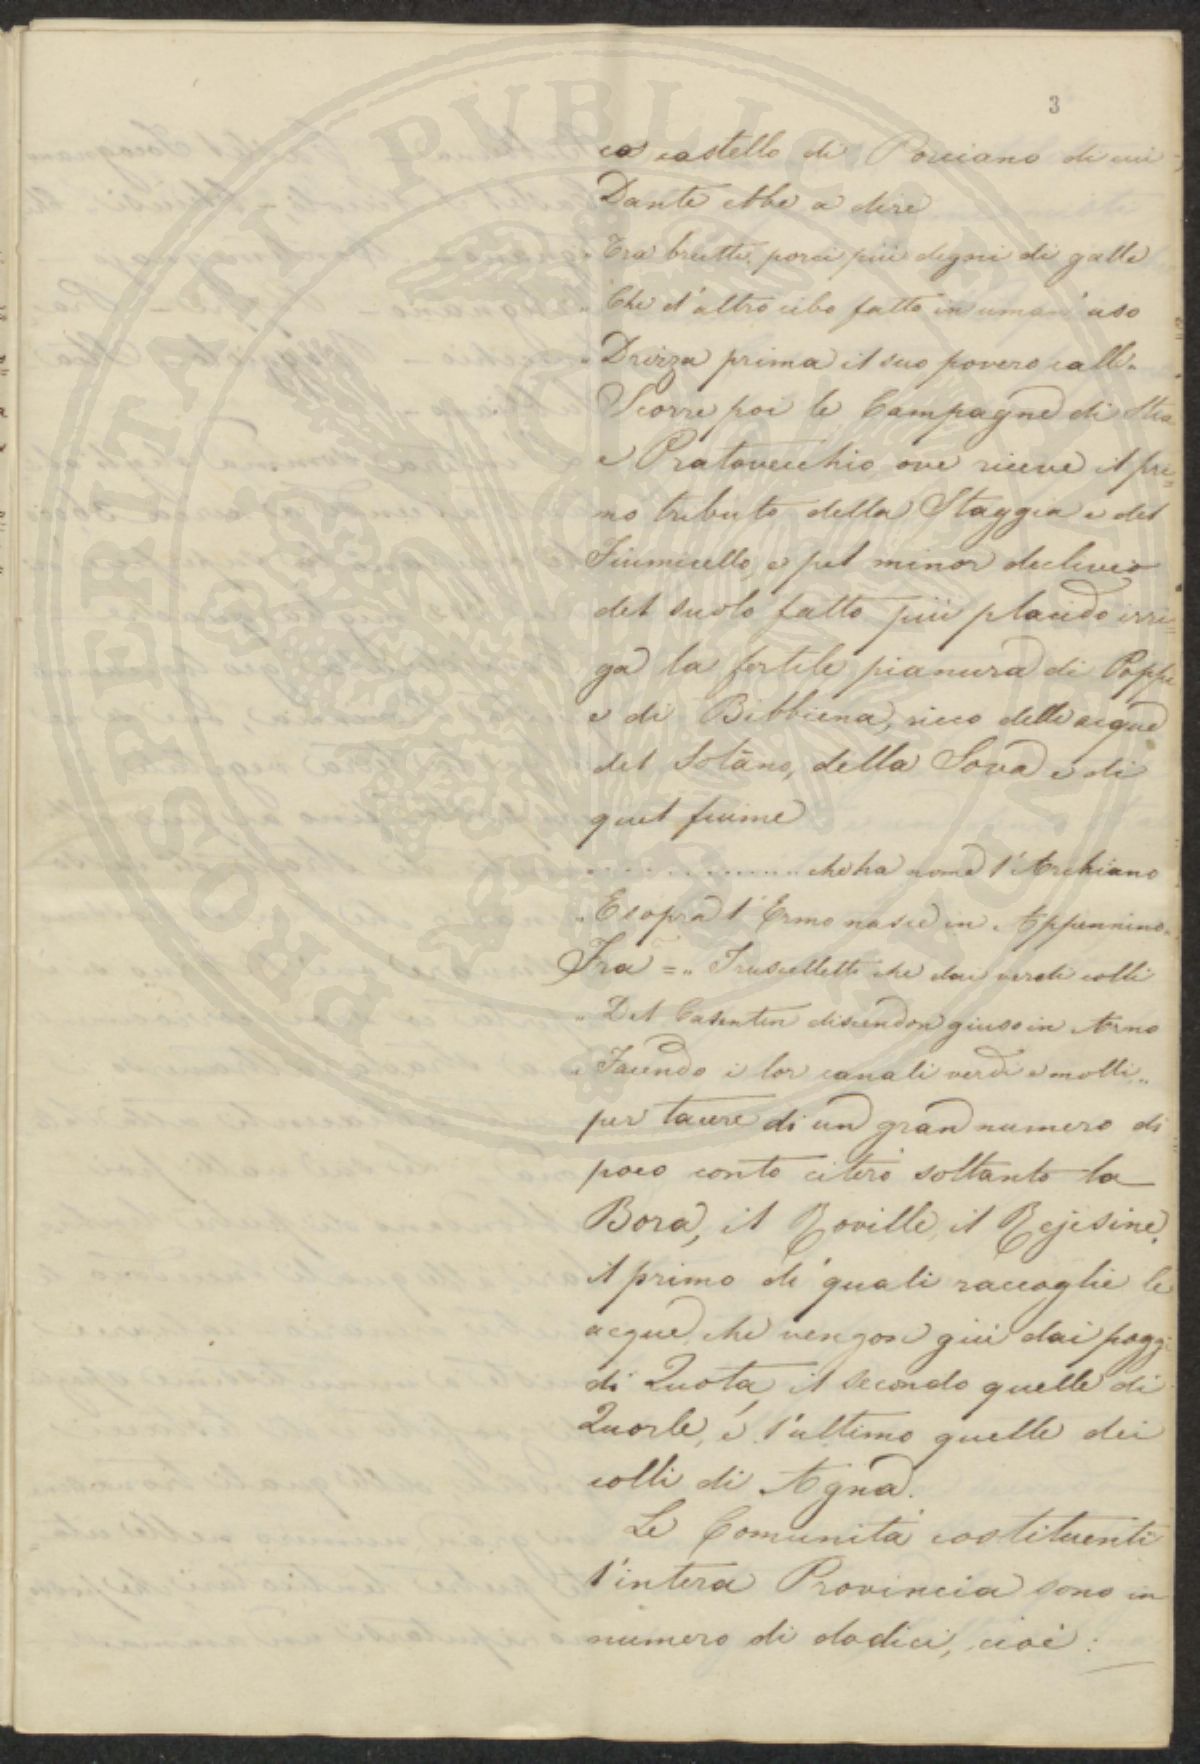 3
co castello di Porciano di cui
Dante ebbe a dire
„ Tra brutti porci più degni di galle
„ Che d'altro cibo fatto in uman' uso
„ Drizza prima il suo povero calle „
Scorre poi le Campagne di Stia
e Pratovecchio ove riceve il pri=
mo tributo della Staggia e del
Fiumicello, e pel minor declivio
del suolo fatto più placido irri=
ga la fertile pianura di Poppi
e di Bibbiena, ricco delle acque
del Solàno, della Sova e di
quel fiume
............... che ha nome l'Archiano
„ E sopra l'Ermo nasce in Appennino „
Fra = „ I ruscelletti che dai verdi colli
„ Del Casentin discendon giuso in Arno
„ Facendo i lor canali verdi e molli „
per tacere di un gran numero di
poco conto citerò soltanto la
Bora, il Roville, il Rejesine,
il primo de' quali raccoglie le
acque che vengon giù dai poggi
di Quota, il secondo quelle di
Quorle, e l'ultimo quelle dei
colli di Agna.
Le Comunità costituenti
l'intera Provincia sono in
numero di dodici, cioè:
PROSPERITATI PVBLICAE